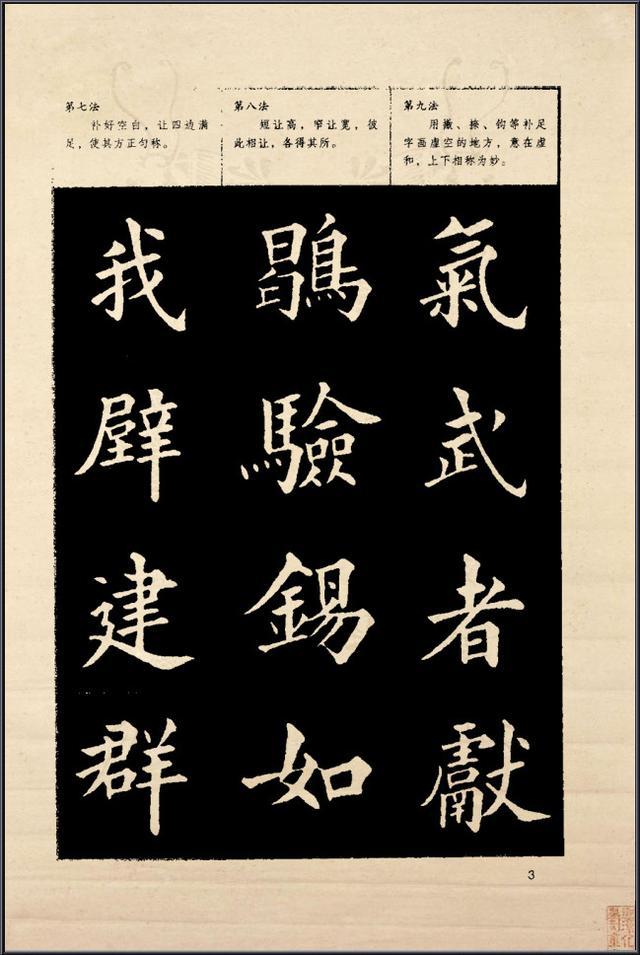 第七法
补好空白，让四边满
足，使其方正匀称。
第八法
短让高，窄让宽，彼
此相让，各得其所。
第九法
用撇、捺、钩等补足
字画虚空的地方，意在虚
和，上下相称为妙。
我辟建群
驗錫如
氣武者獻
3